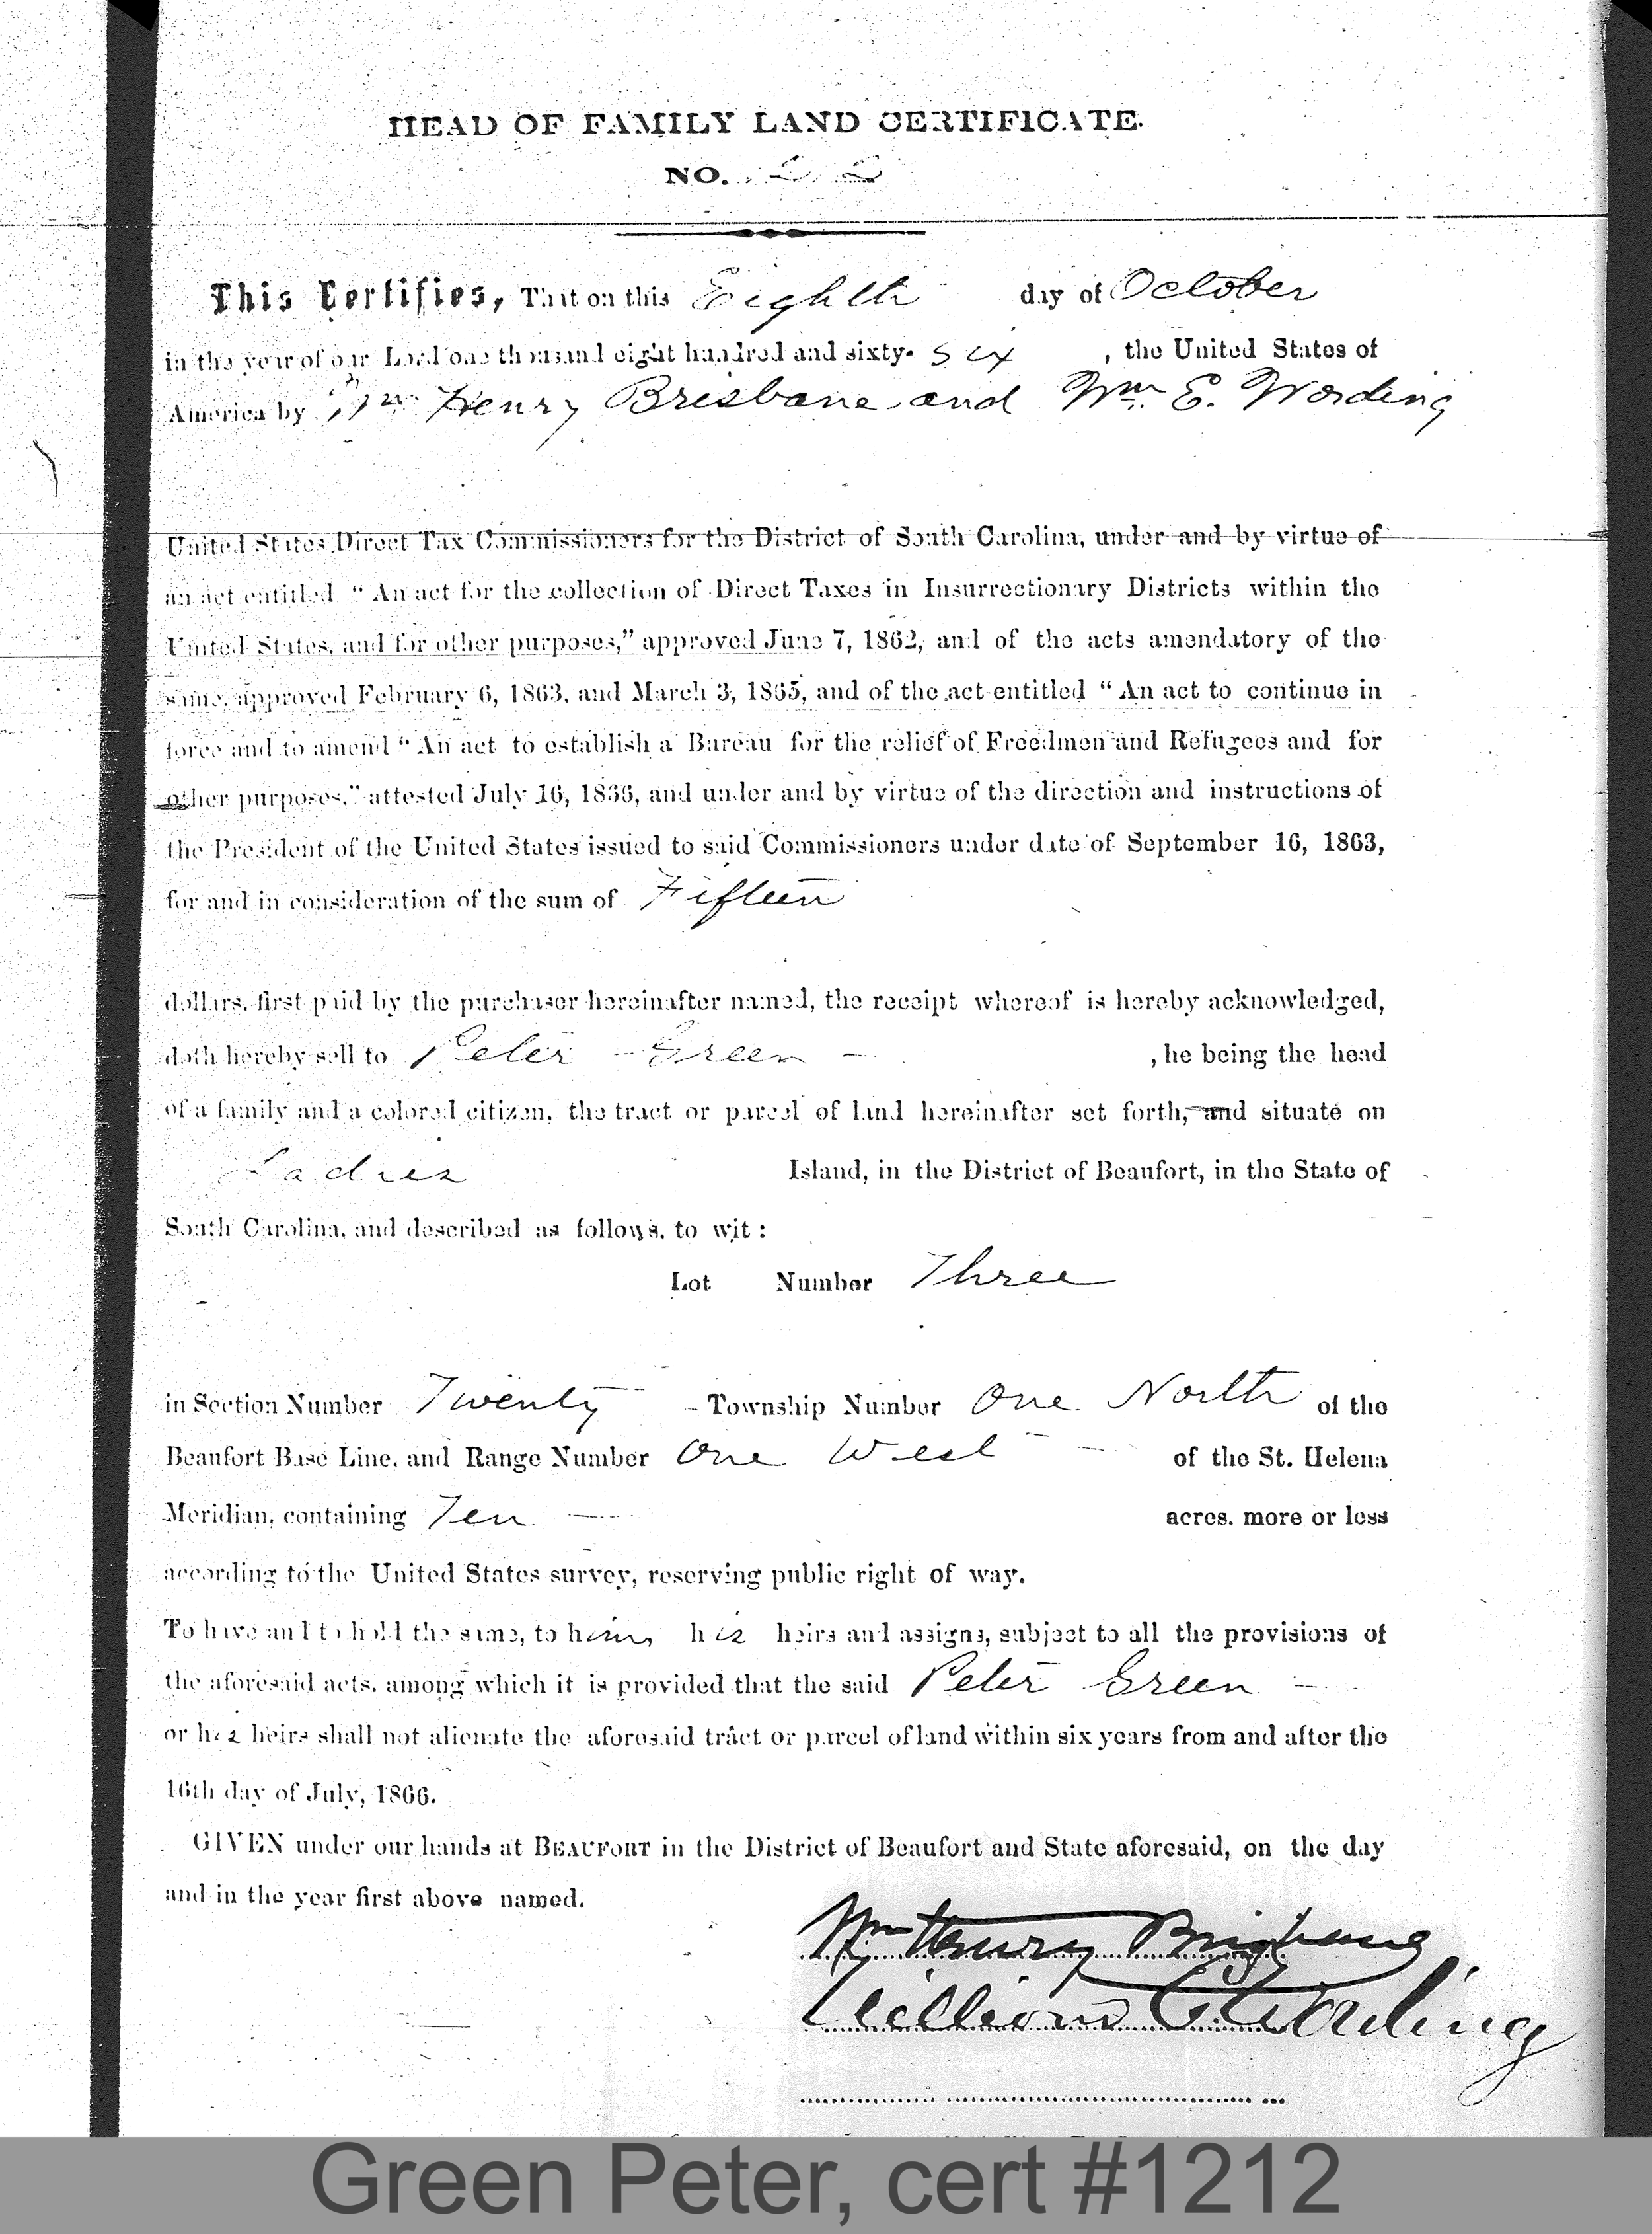 HEAD OF FAMILY LAND CERTIFICATE.
NO.
This Certifies, That on this Eighth day of October
in the year of our Lord one thousand eight hundred and sixty-six, the United States of
America by Wm Henry Brisbane and Wm. E. Wording
United States Direct Tax Commissioners for the District of South Carolina, under and by virtue of
an act entitled "An act for the collection of Direct Taxes in Insurrectionary Districts within the
United States, and for other purposes," approved June 7, 1862, and of the acts amendatory of the
same, approved February 6, 1863, and March 3, 1865, and of the act entitled "An act to continue in
force and to amend "An act to establish a Bureau for the relief of Freedmen and Refugees and for
other purposes," attested July 16, 1866, and under and by virtue of the direction and instructions of
the President of the United States issued to said Commissioners under date of September 16, 1863,
for and in consideration of the sum of Fifteen
dollars, first paid by the purchaser hereinafter named, the receipt whereof is hereby acknowledged,
doth hereby sell to Peter Green, he being the head
of a family and a colored citizen, the tract or parcel of land hereinafter set forth, and situate on
Ladies Island, in the District of Beaufort, in the State of
South Carolina, and described as follows, to wit:
Lot Number Three
in Section Number Twenty - Township Number One North of the
Beaufort Base Line, and Range Number One West of the St. Helena
Meridian, containing Ten acres. more or less
according to the United States survey, reserving public right of way.
To have and to hold the same, to him, his heirs and assigns, subject to all the provisions of
the aforesaid acts, among which it is provided that the said Peter Green
or his heirs shall not alienate the aforesaid tract or parcel of land within six years from and after the
16th day of July, 1866.
GIVEN under our hands at BEAUFORT in the District of Beaufort and State aforesaid, on the day
and in the year first above named.
Wm Henry Brisbane
William E Wording
Green Peter, cert #1212